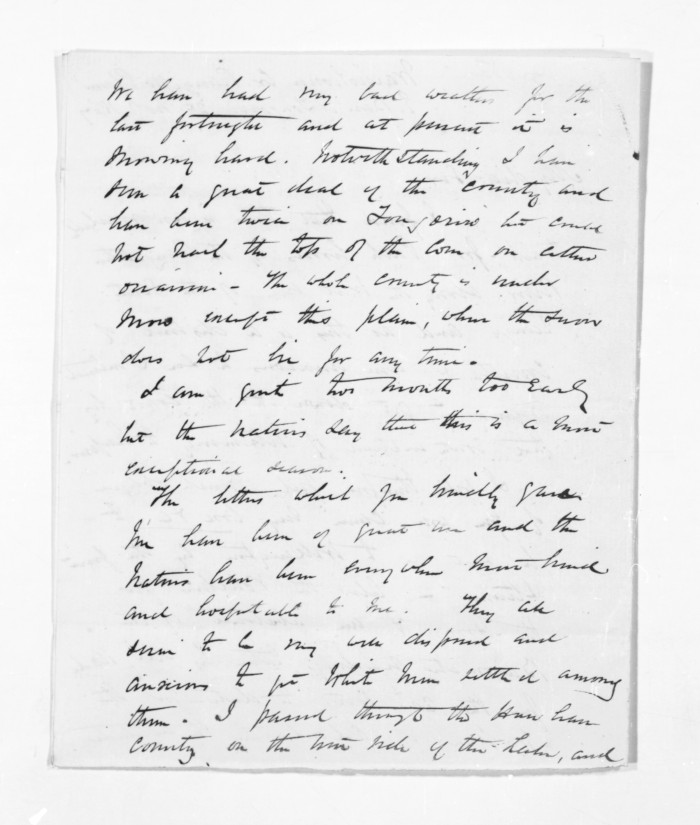 We have had very bad weather for the
last fortnight and at present it is
snowing hard. Notwithstanding I have
seen a great deal of the country and
have been twice on Tongariro but could
not reach the top of the Cone on either
occasion - The whole country is under
snow except this plain, where the snow
does not lie for any time.
I am quite two months too early
but the natives say that this is a most
exceptional season.
The letters which you kindly gave
me have been of great use and the
natives have been everywhere most kind
and hospitable to me. They all
seem to be very well disposed and
anxious to get White men settled among
them. I passed through the
country on the side of the Lake, and